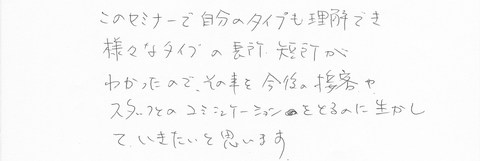 このセミナーで自分のタイプも理解でき
様々なタイプの長所、短所が
わかったので、その事を今後の接客や
スタッフとのコミュニケーションをとるのに生かし
ていきたいと思います